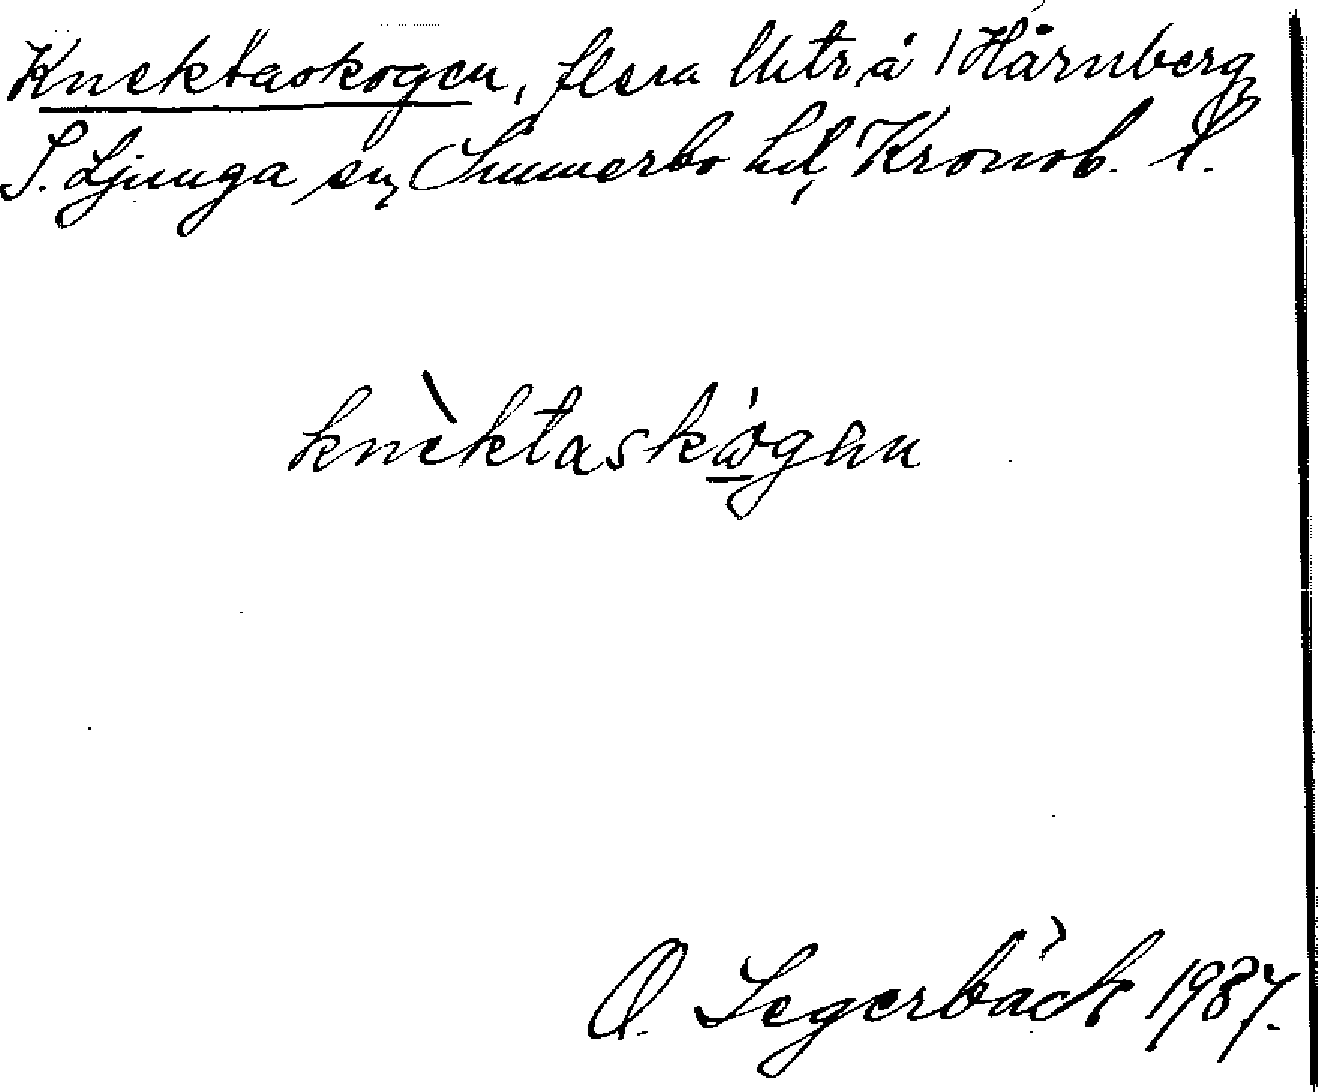 Knektaskogen, flera lhtr å 1 Hårnberg
S. Ljunga sn, Sunnerbo hd, Kronob. l.
knèktaskógen
O. Segerbäck 1987.